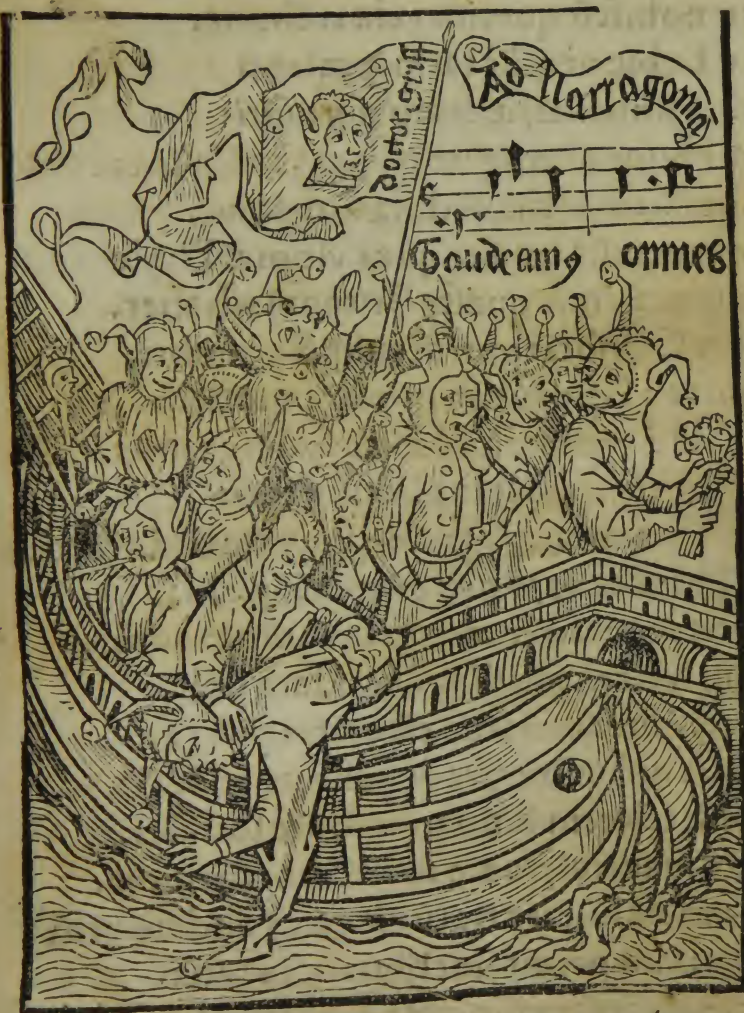 doctor griff
Ad Narragoniā
Gaudeamꝰ omnes